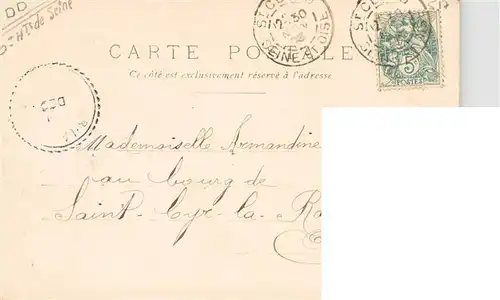 DD
Hts de Seine
ST CL
12 30
SEINE ET OISE
CARTE POSTALE
Ce côté est exclusivement réservé à l'adresse.
5
POSTES
Mademoiselle Armandine
au bourg de
Saint-Cyr-la-Ro